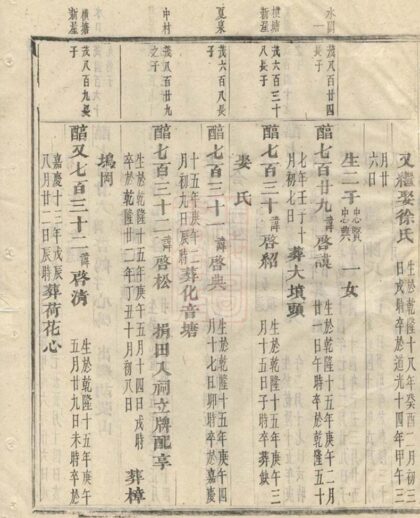 水閣一
茂八百廿四長子
橫塘新屋
茂六百三十八長子
夏泉
茂六百八長子
中村
茂八百廿九之子
橫塘新屋
茂八百九長子
又繼娶徐氏
生於乾隆十八癸酉二月初三
日戌時卒於道光十四年甲午三
月廿六日
生二子忠賢忠典 一女
醕七百廿九諱啓謨
生於乾隆十五年庚午二月
廿一日午時卒於乾隆五十
七年壬子十月初七日
葬大墳頭
醕七百三十諱啓紹
生於乾隆十五年庚午三
月十五日子時卒葬缺
娶 氏
醕七百三十一諱啓典
生於乾隆十五年庚午四
月十七日卯時卒於嘉慶
十五年庚午二月初九日辰時
葬化音塘
醕七百三十二諱啓松
捐田入祠立牌配享
生於乾隆十五年庚午五月十四日戌時
卒於乾隆廿二年丁丑十月初八日
葬樟塢岡
醕又七百三十二諱啓清
生於乾隆十五年庚午
五月廿九日未時卒於
嘉慶十三年戊辰
八月廿二日辰時
葬荷花心